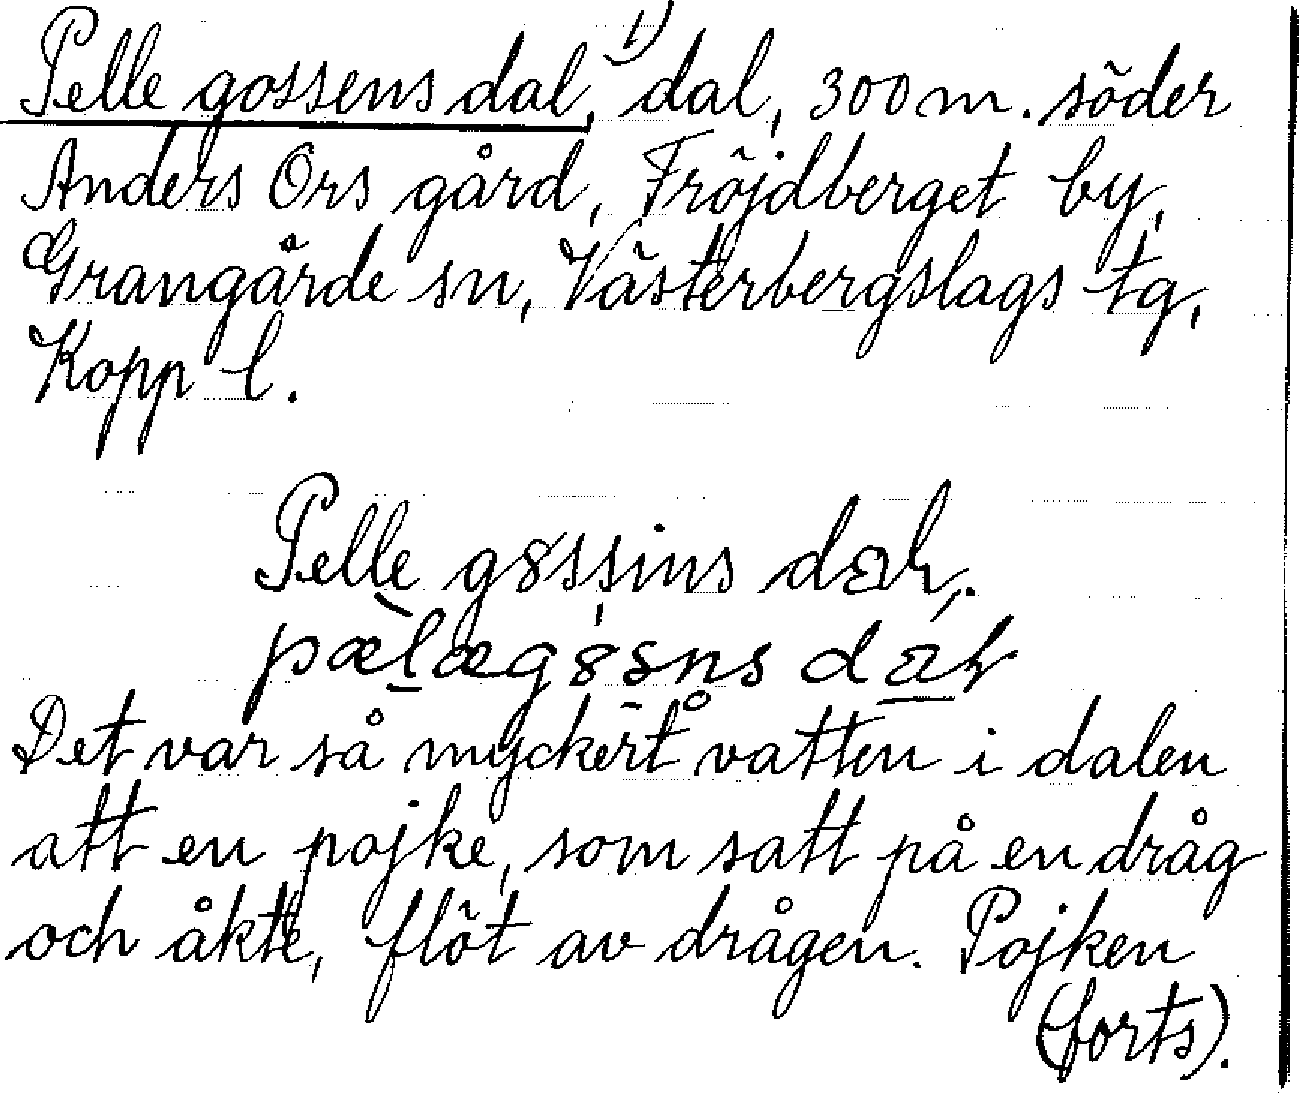 Pelle gossens dal, 1) dal, 300 m. söder
Anders Ors gård, Fröjdberget by,
Grangärde sn, Västerbergslags tg,
Kopp l.
Pelle
Det var så myckert vatten i dalen
att en pojke, som satt på en dråg
och åkte, flöt av drågen. Pojken
(forts).